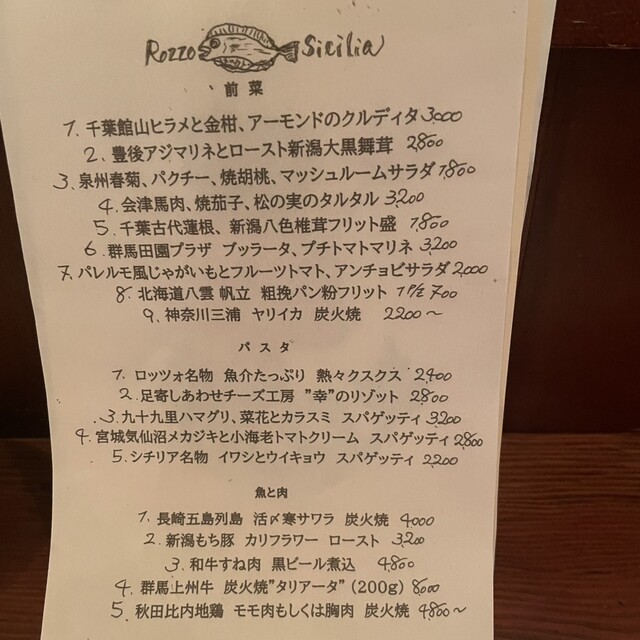 Rozzo Sicilia
前菜
1. 千葉館山ヒラメと金柑、アーモンドのクルディタ 3,000
2. 豊後アジマリネとロースト新潟大黒舞茸 2,800
3. 泉州春菊、パクチー、焼胡桃、マッシュルームサラダ 1,800
4. 会津馬肉、焼茄子、松の実のタルタル 3,200
5. 千葉古代蓮根、新潟八色椎茸フリット盛 1,800
6. 群馬田園プラザ ブッラータ、プチトマトマリネ 3,200
7. パレルモ風じゃがいもとフルーツトマト、アンチョビサラダ 2,000
8. 北海道八雲 帆立 粗挽パン粉フリット 1P/2 700
9. 神奈川三浦 ヤリイカ 炭火焼 2200〜
パスタ
1. ロッツォ名物 魚介たっぷり 熱々クスクス 2,400
2. 足寄しあわせチーズ工房 "幸"のリゾット 2,800
3. 九十九里ハマグリ、菜花とカラスミ スパゲッティ 3,200
4. 宮城気仙沼メカジキと小海老トマトクリーム スパゲッティ 2,800
5. シチリア名物 イワシとウイキョウ スパゲッティ 2,200
魚と肉
1. 長崎五島列島 活〆寒サワラ 炭火焼 4,000
2. 新潟もち豚 カリフラワー ロースト 3,200
3. 和牛すね肉 黒ビール煮込 4,800
4. 群馬上州牛 炭火焼"タリアータ" (200g) 8,000
5. 秋田比内地鶏 モモ肉もしくは胸肉 炭火焼 4,800〜